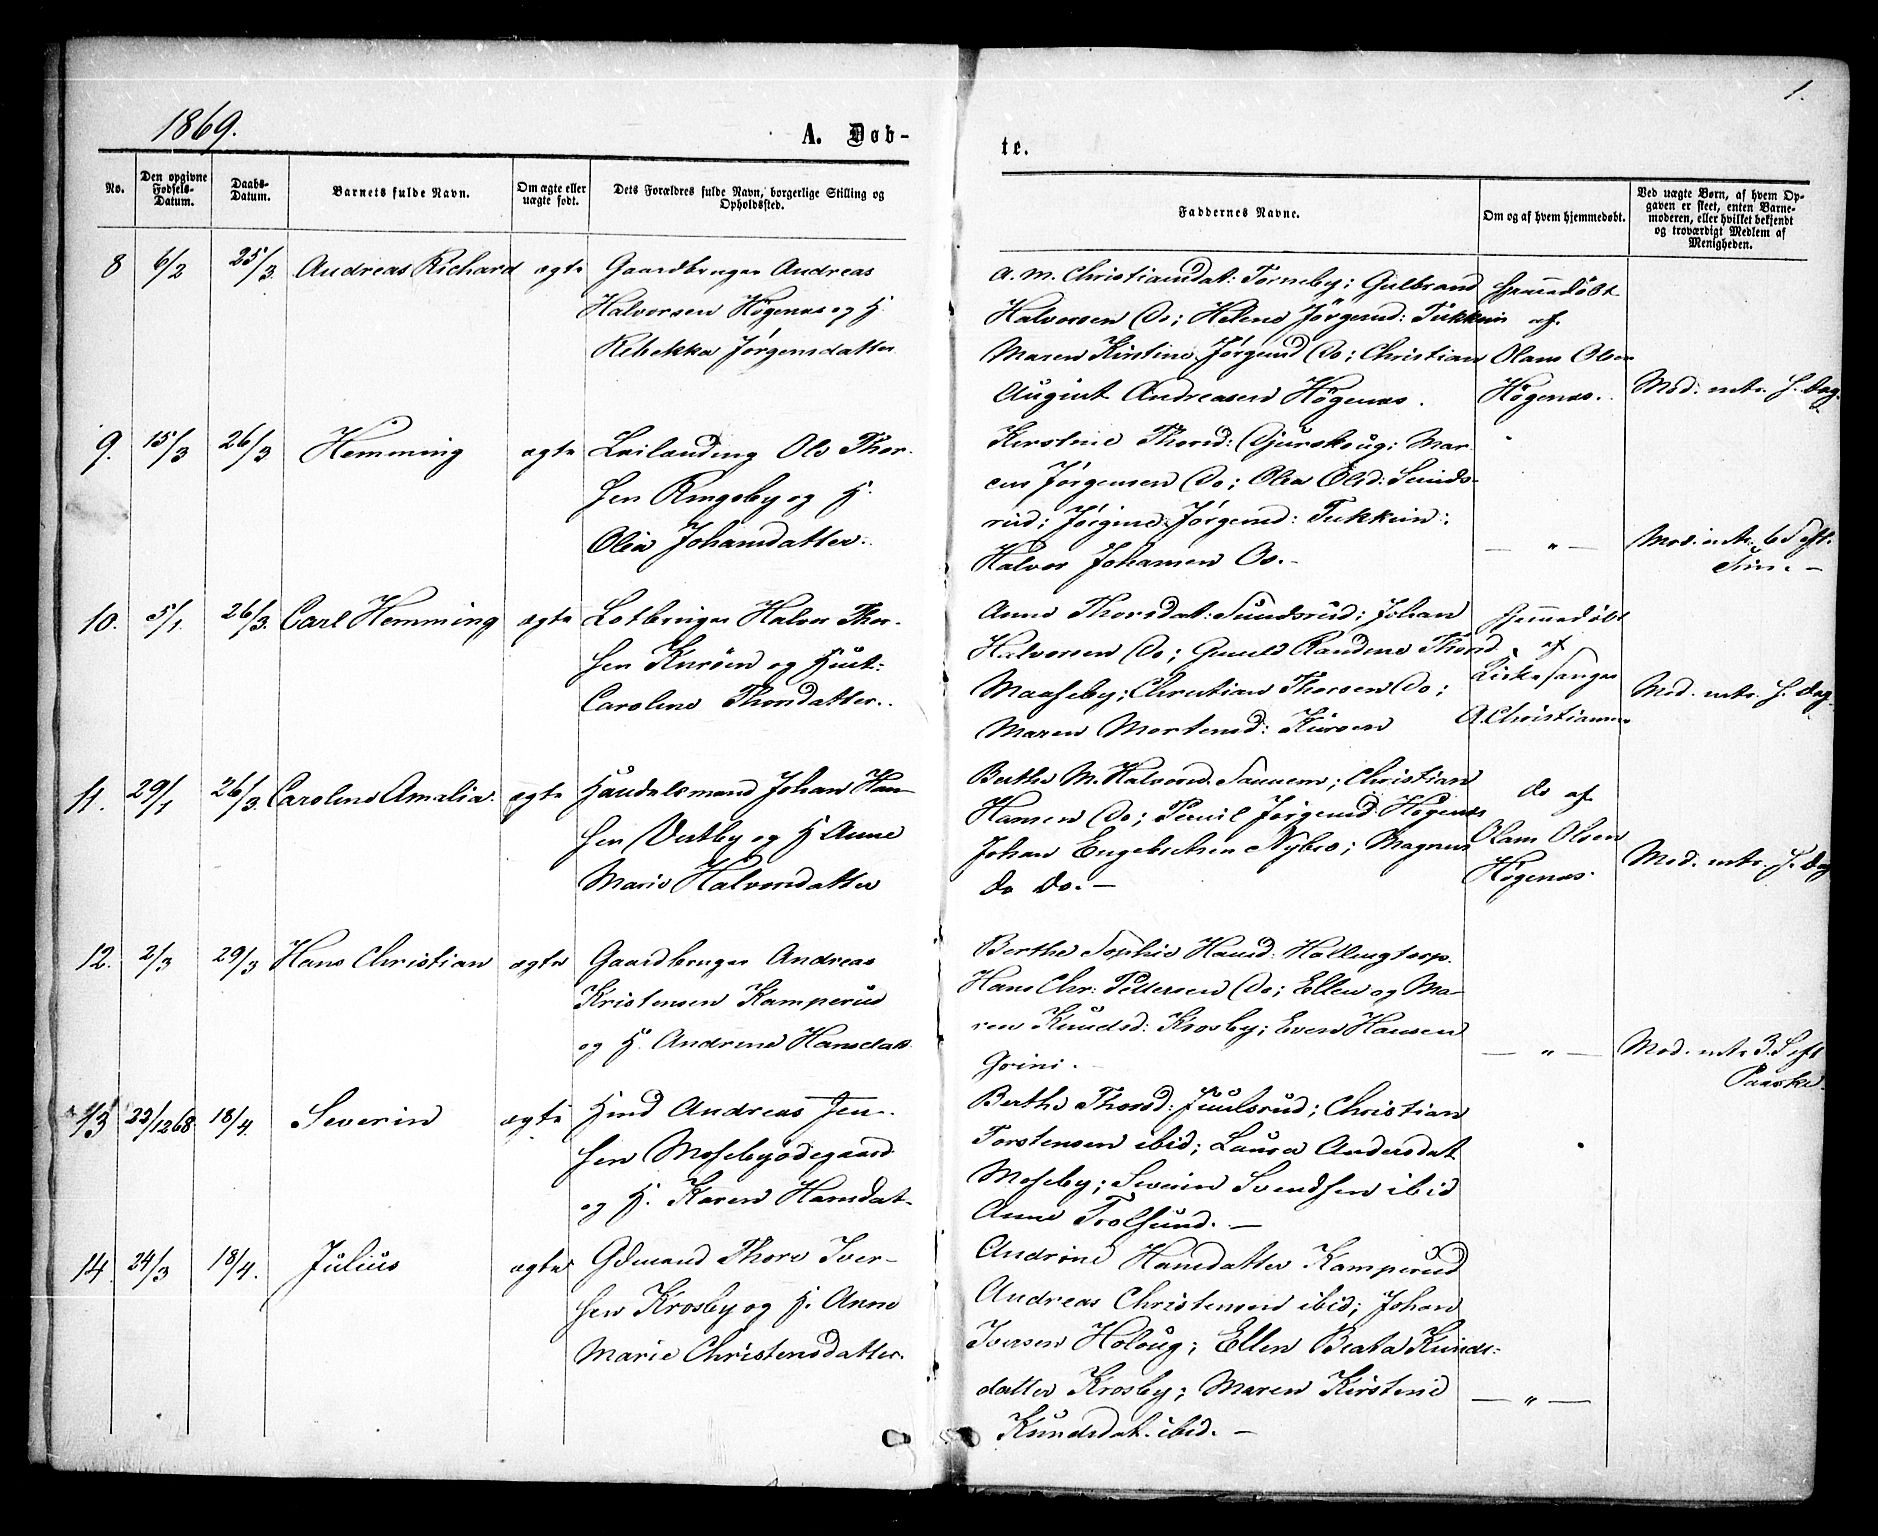 1869.
A. Døb-
te.
1.
No.
Den opgivne Fødsels-Datum.
Daabs-Datum.
Barnets fulde Navn.
Om ægte eller uægte født.
Dets Forældres fulde Navn, borgerlige Stilling og Opholdssted.
Faddernes Navne.
Om og af hvem hjemmedøbt.
Ved uægte Børn, af hvem Op-
gaven er skeet, enten Barne-
moderen, eller hvilket bekjendt
og troværdigt Medlem af
Menigheden.
8 6/2 25/3. Andreas Richard ægte Gaardbruger Andreas
Halvorsen Högenæs og H.
Rebekka Jørgensdatter
A. M. Christiansdat: Torneby; Gulbrand
Halvorsen Do; Helene Jörgensd: Tukkein
Maren Kirstine Jörgensd Do; Christian
August Andreasen Högenæs.
Hjemmedöbt
af
Olaus Olsen
Högenæs.
Mod. intr. s. Dag.
9. 15/3 26/3 Hemming ægte Leilænding Ole Thor-
sen Ringsby og H.
Olea Johansdatter.
Kirstine Thorsd: Gjurskoug; Mar-
en Jörgensen Do; Olea Olsd: Sunds-
rud; Jörgine Jörgensd: Tukkein:
Halvor Johansen Os.-
— " —
Mod. intr. 6 S. eft.
Trin. -
10. 5/1. 26/3. Carl Hemming ægte Lotbruger Halvor Thor-
sen Kuröen og Hust:
Caroline Thorsdatter.
Anne Thorsdat: Sundsrud; Johan
Halvorsen Do; Gunild Randine Thorsd
Maaseby; Christian Thorsen Do;
Maren Mortensd: Kuröen
Hjemmedöbt
af
Kirkesanger
A. Christiansen
Mod. intr. s. Dag.
11. 29/1 26/3. Caroline Amalia. ægte Handelsmand Johan Han-
sen Vestby og H Anne
Marie Halvorsdatter
Berthe M. Halvorsd. Sannem; Christian
Hansen Do; Pernil Jörgensd: Högenæs
Johan Engebretsen Nybro; Magnus
do do.—
do af
Olaus Olsen
Högenæs.
Mod. intr. s. Dag
12. 2/3 29/3 Hans Christian ægte Gaardbruger Andreas
Kristensen Kamperud
og H. Andrine Hansdat
Berthe Sophie Hansd. Hallingtorp.
Hans Chr: Pettersen Do; Ellen og Ma-
ren Knudsd: Krosby; Even Hansen
Grini.
— " —
Mod. intr. 3. S. eft
Paaske.
13 22/12 68. 18/4. Severin ægte Hmd Andreas Jen-
sen Mosebyödegaard
og H. Karen Hansdat-
Berthe Thorsd: Juulsrud; Christian
Torstensen ibid; Laura Andersdat
Moseby; Severin Svendsen ibid
Anne Trolsund. —
14. 24/3 18/4. Julius ægte Gdmand Thore Iver-
sen Krosby og H. Anne
Marie Christensdatter.
Andrine Hansdatter Kamperud
Andreas Christensen ibid; Johan
Iversen Holoug; Ellen Beata Knuds-
datter Krosby; Maren Kirstine
Knudsdat. ibid. —
— " —